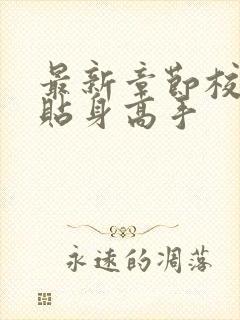 最新章节校
贴身高手
永远的凋落